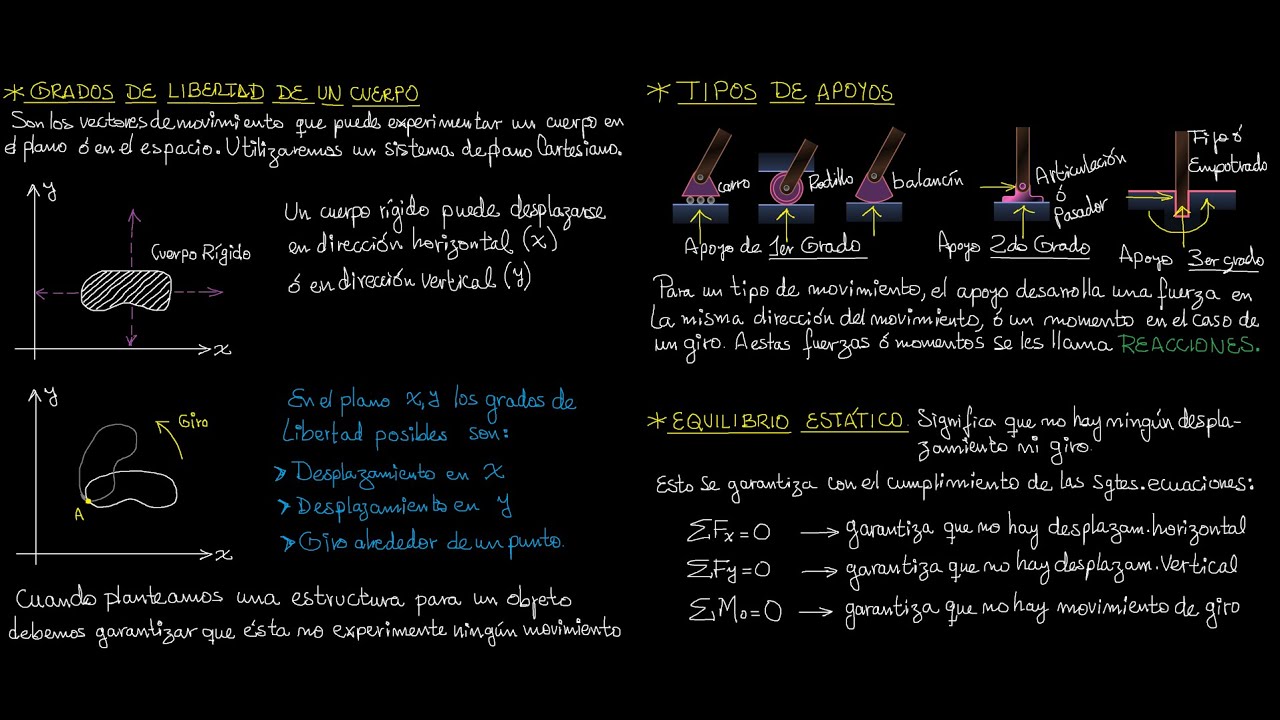 * GRADOS DE LIBERTAD DE UN CUERPO
Son los vectores de movimiento que puede experimentar un cuerpo en
el plano ó en el espacio. Utilizaremos un sistema de plano Cartesiano.
y
Cuerpo Rígido
x
Un cuerpo rígido puede desplazarse
en dirección horizontal (x)
ó en dirección vertical (y)
y
Giro
A
x
En el plano x,y los grados de
Libertad posibles son:
➤ Desplazamiento en x
➤ Desplazamiento en y
➤ Giro alrededor de un punto.
Cuando planteamos una estructura para un objeto
debemos garantizar que ésta no experimente ningún movimiento
* TIPOS DE APOYOS
carro
Rodillo
balancín
Apoyo de 1er Grado
Articulación
ó
Pasador
Apoyo 2do Grado
Fijo ó
Empotrado
Apoyo 3er grado
Para un tipo de movimiento, el apoyo desarolla una fuerza en
la misma dirección del movimiento, ó un momento en el caso de
un giro. A estas fuerzas ó momentos se les llama REACCIONES.
* EQUILIBRIO ESTÁTICO. Significa que no hay ningún despla-
zamiento ni giro.
Esto se garantiza con el cumplimiento de las sgtes. ecuaciones:
ΣFx=0 → garantiza que no hay desplazam. horizontal
ΣFy=0 → garantiza que no hay desplazam. Vertical
ΣMo=0 → garantiza que no hay movimiento de giro